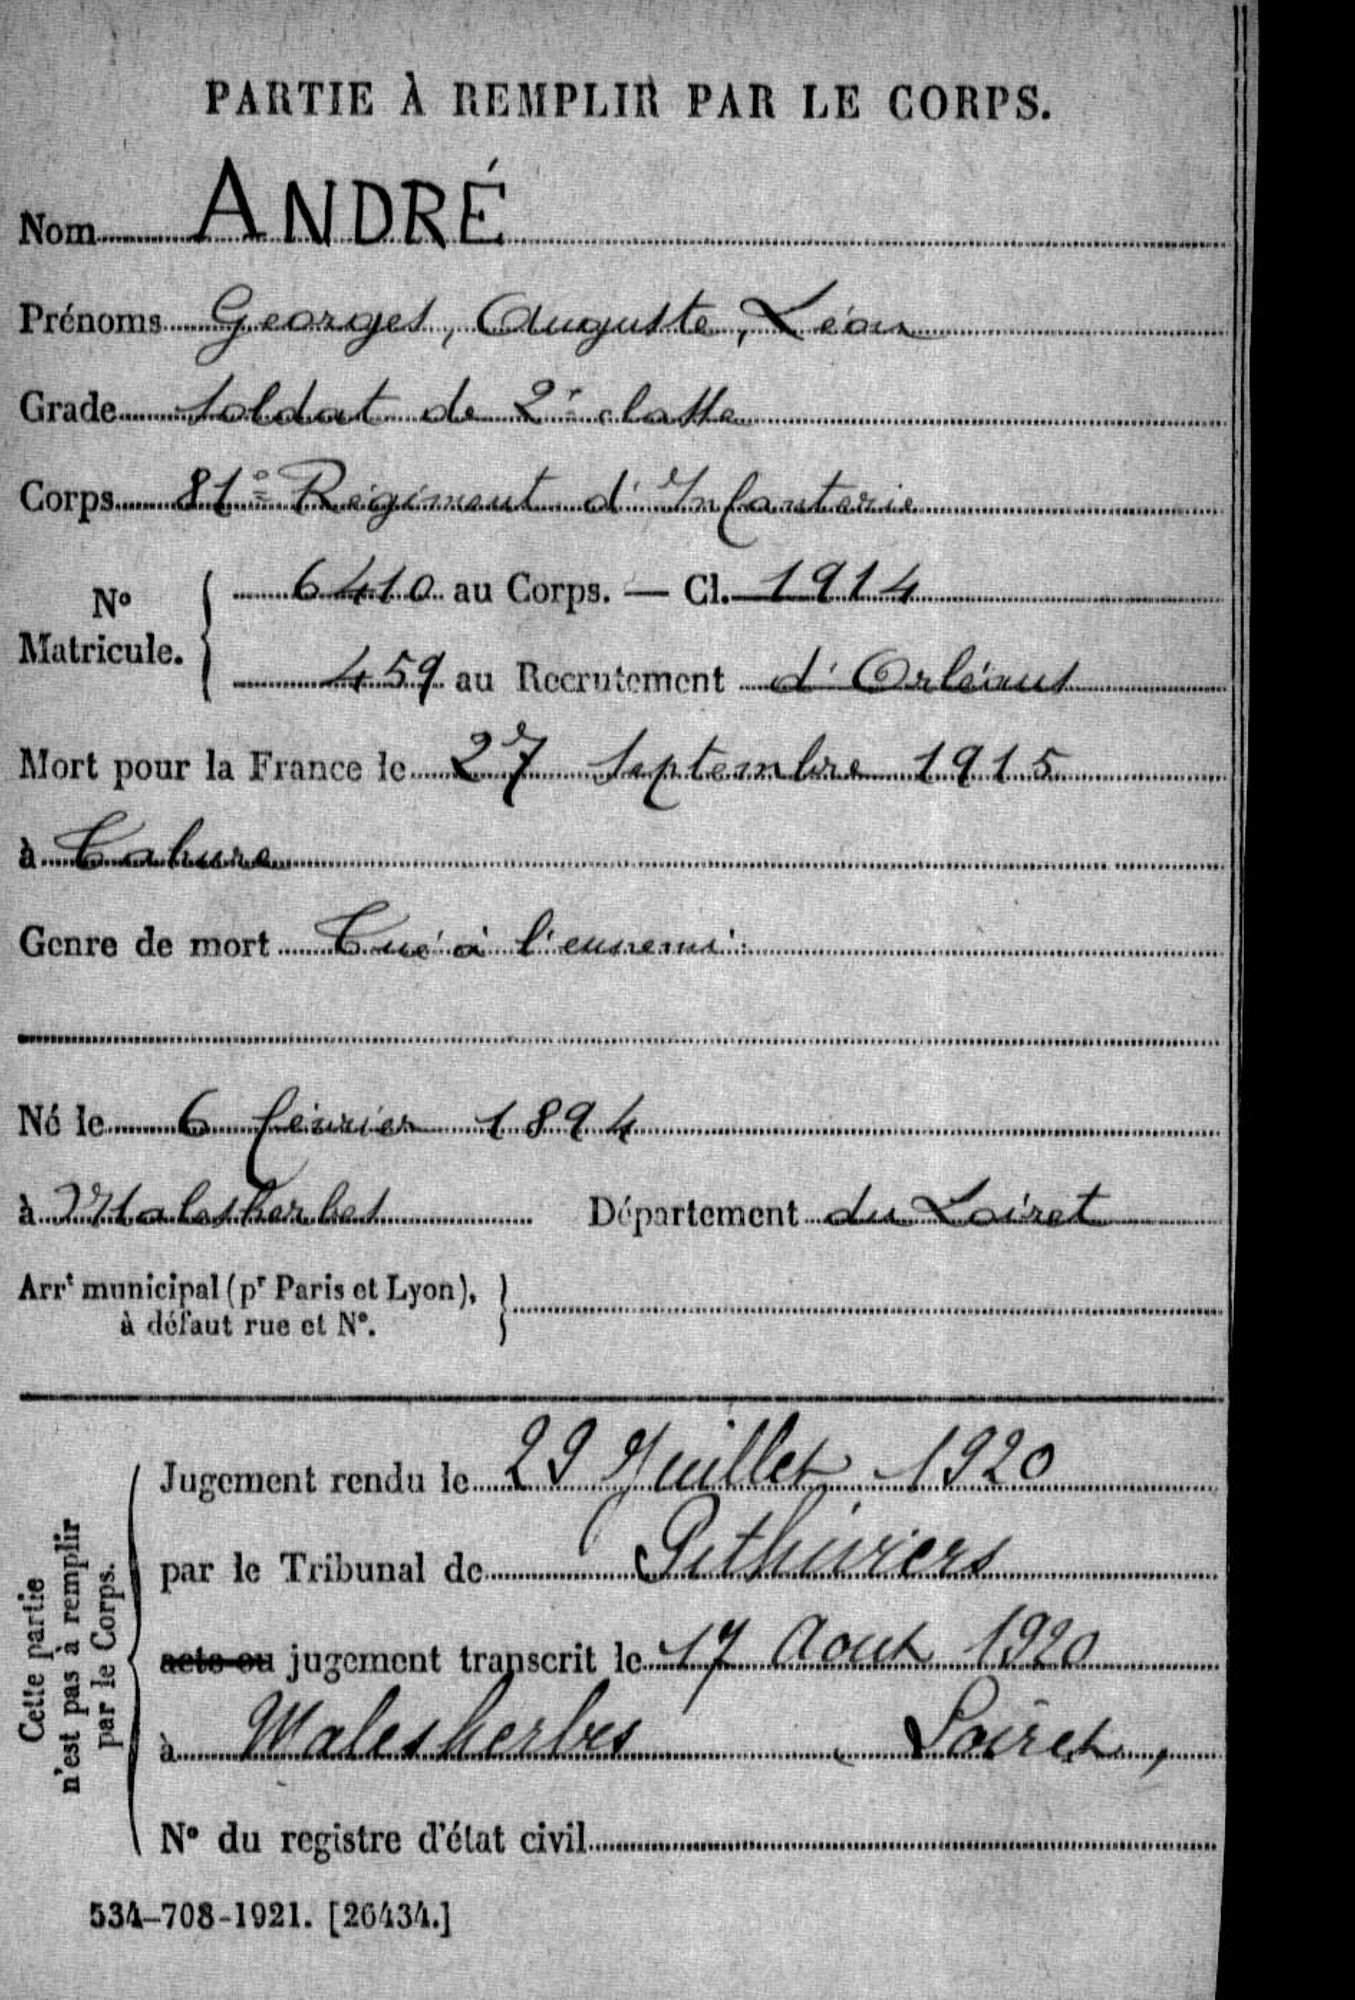 PARTIE À REMPLIR PAR LE CORPS.
Nom ANDRÉ
Prénoms Georges, Auguste, Léon
Grade Soldat de 2e classe
Corps 81e Régiment d'Infanterie
No Matricule. { 6410 au Corps. — Cl. 1914
459 au Recrutement d'Orléans
Mort pour la France le 27 Septembre 1915
à Tahure
Genre de mort Tué à l'ennemi
Né le 6 février 1894
à Malesherbes Département du Loiret
Arrt municipal (pr Paris et Lyon), }
à défaut rue et No.
Cette partie
n'est pas à remplir
par le Corps.
Jugement rendu le 29 Juillet 1920
par le Tribunal de Pithiviers
acte ou jugement transcrit le 17 Aout 1920
à Malesherbes (Loiret,
No du registre d'état civil
534-708-1921. [26434.]